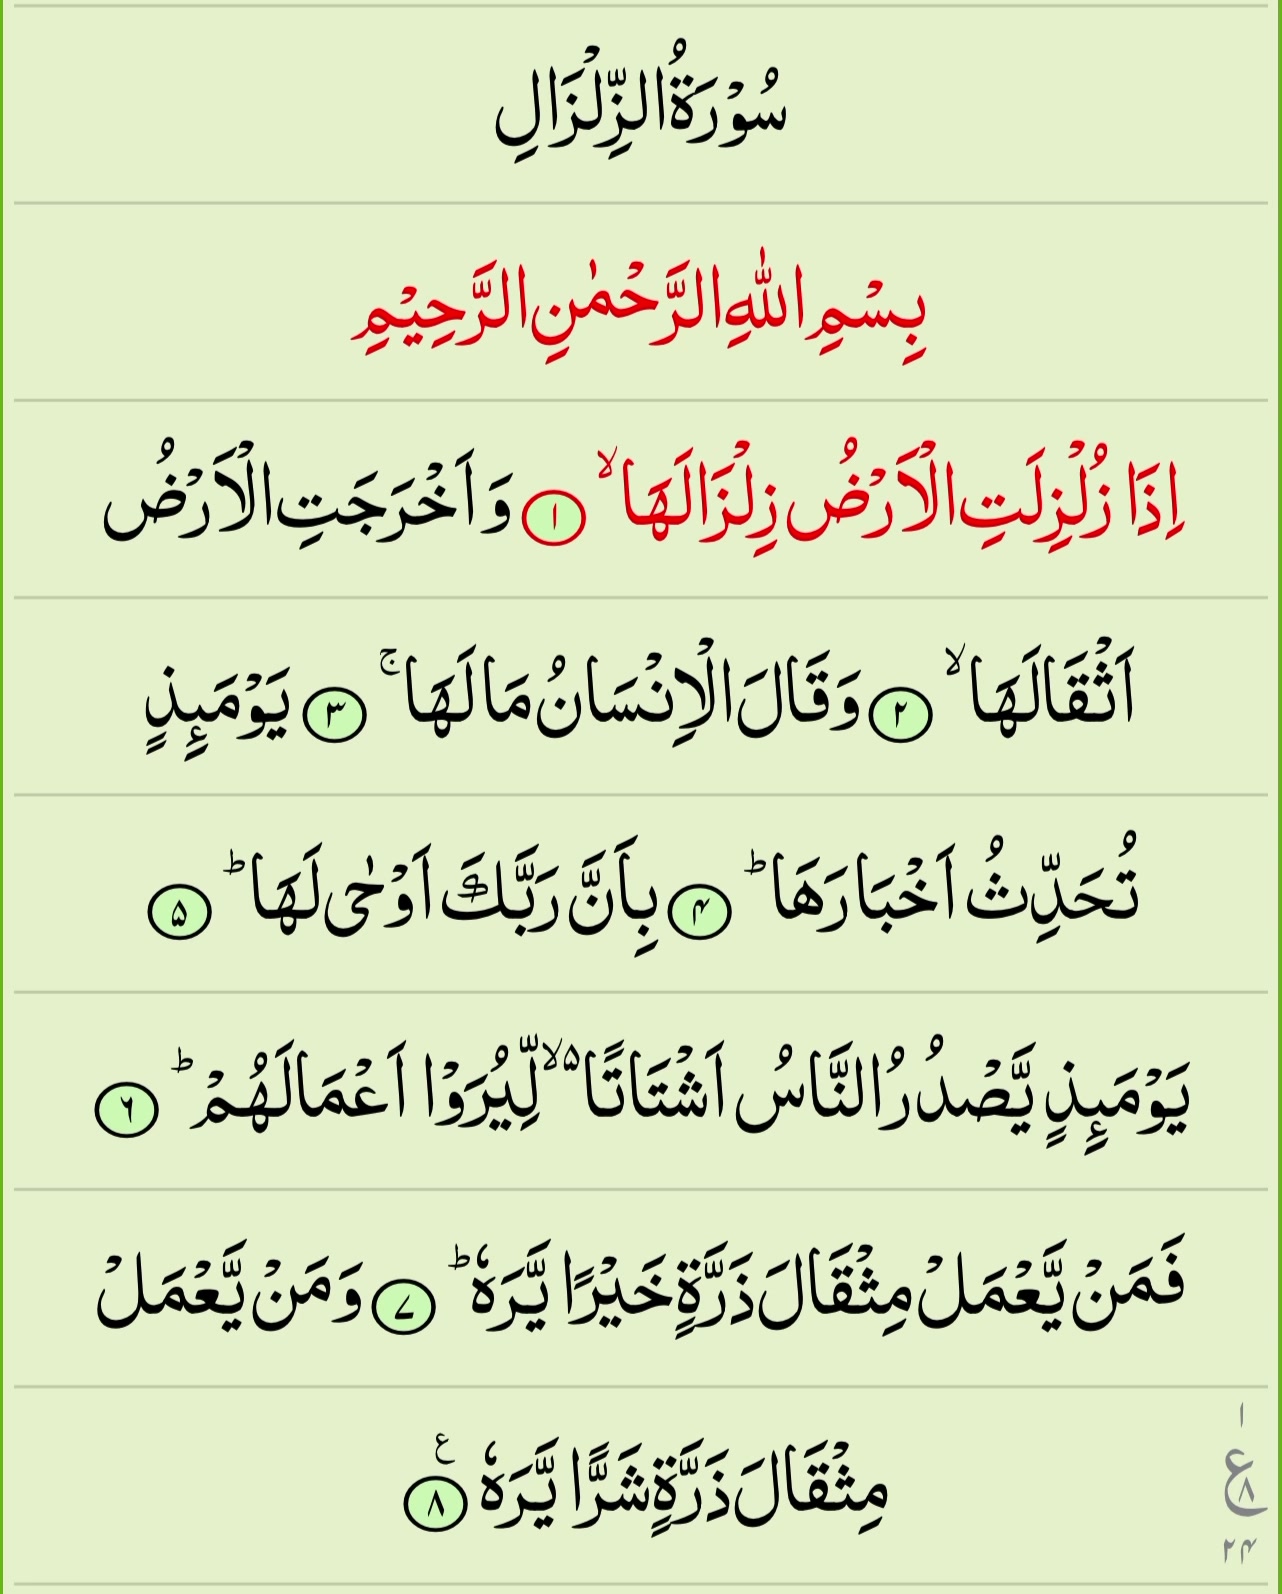 سُوْرَۃُ الزِّلْزَالِ
بِسْمِ اللّٰهِ الرَّحْمٰنِ الرَّحِيْمِ
اِذَا زُلْزِلَتِ الْاَرْضُ زِلْزَالَهَا ۙ ﴿۱﴾ وَ اَخْرَجَتِ الْاَرْضُ
اَثْقَالَهَا ۙ ﴿۲﴾ وَ قَالَ الْاِنْسَانُ مَا لَهَا ۚ ﴿۳﴾ يَوْمَىِٕذٍ
تُحَدِّثُ اَخْبَارَهَا ؕ ﴿۴﴾ بِاَنَّ رَبَّكَ اَوْحٰى لَهَا ؕ ﴿۵﴾
يَوْمَىِٕذٍ يَّصْدُرُ النَّاسُ اَشْتَاتًا ۵ۙ لِّيُرَوْا اَعْمَالَهُمْ ؕ ﴿۶﴾
فَمَنْ يَّعْمَلْ مِثْقَالَ ذَرَّةٍ خَيْرًا يَّرَهٗ ؕ ﴿۷﴾ وَ مَنْ يَّعْمَلْ
مِثْقَالَ ذَرَّةٍ شَرًّا يَّرَهٗ ع ﴿۸﴾
۱
ع ۸
۲۴